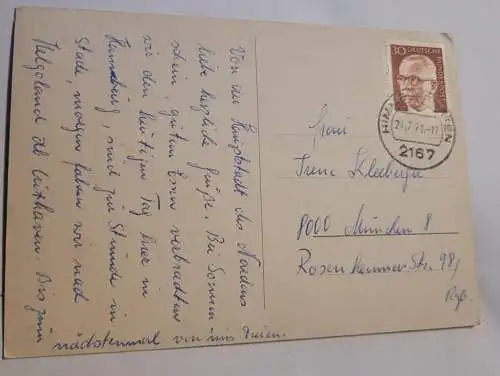 Von der Hauptstadt des Nordens
liebe herzliche Grüße. Bei Sonnen
schein, gutem Essen verbrachten
wir den heutigen Tag hier in
Hamburg, sind zur Stunde in
Stade, morgen fahren wir nach
Helgoland ab Cuxhaven. Bis zum
nächstenmal von uns Dreien.
30 DEUTSCHE BUNDESPOST
2167
Frau
Irene
8000 München 8
Rosenheimer Str. 98/